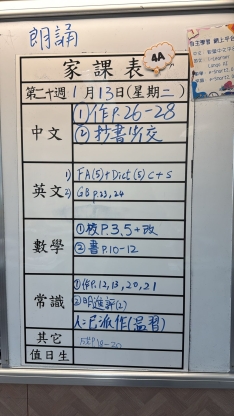 朗誦
家課表
4A
第二十週 1月13日(星期二)
中文
①作P.26-28
②抄書
英文
1) FA(5)+Dict(5) C+S
2) GB P.23,24
數學
①校P.3,5+改
②書P.10-12
常識
①作P.12,13,20,21
②明進評(2)
人:已派作(溫習)
其它
值日生
自主學習 網上平台